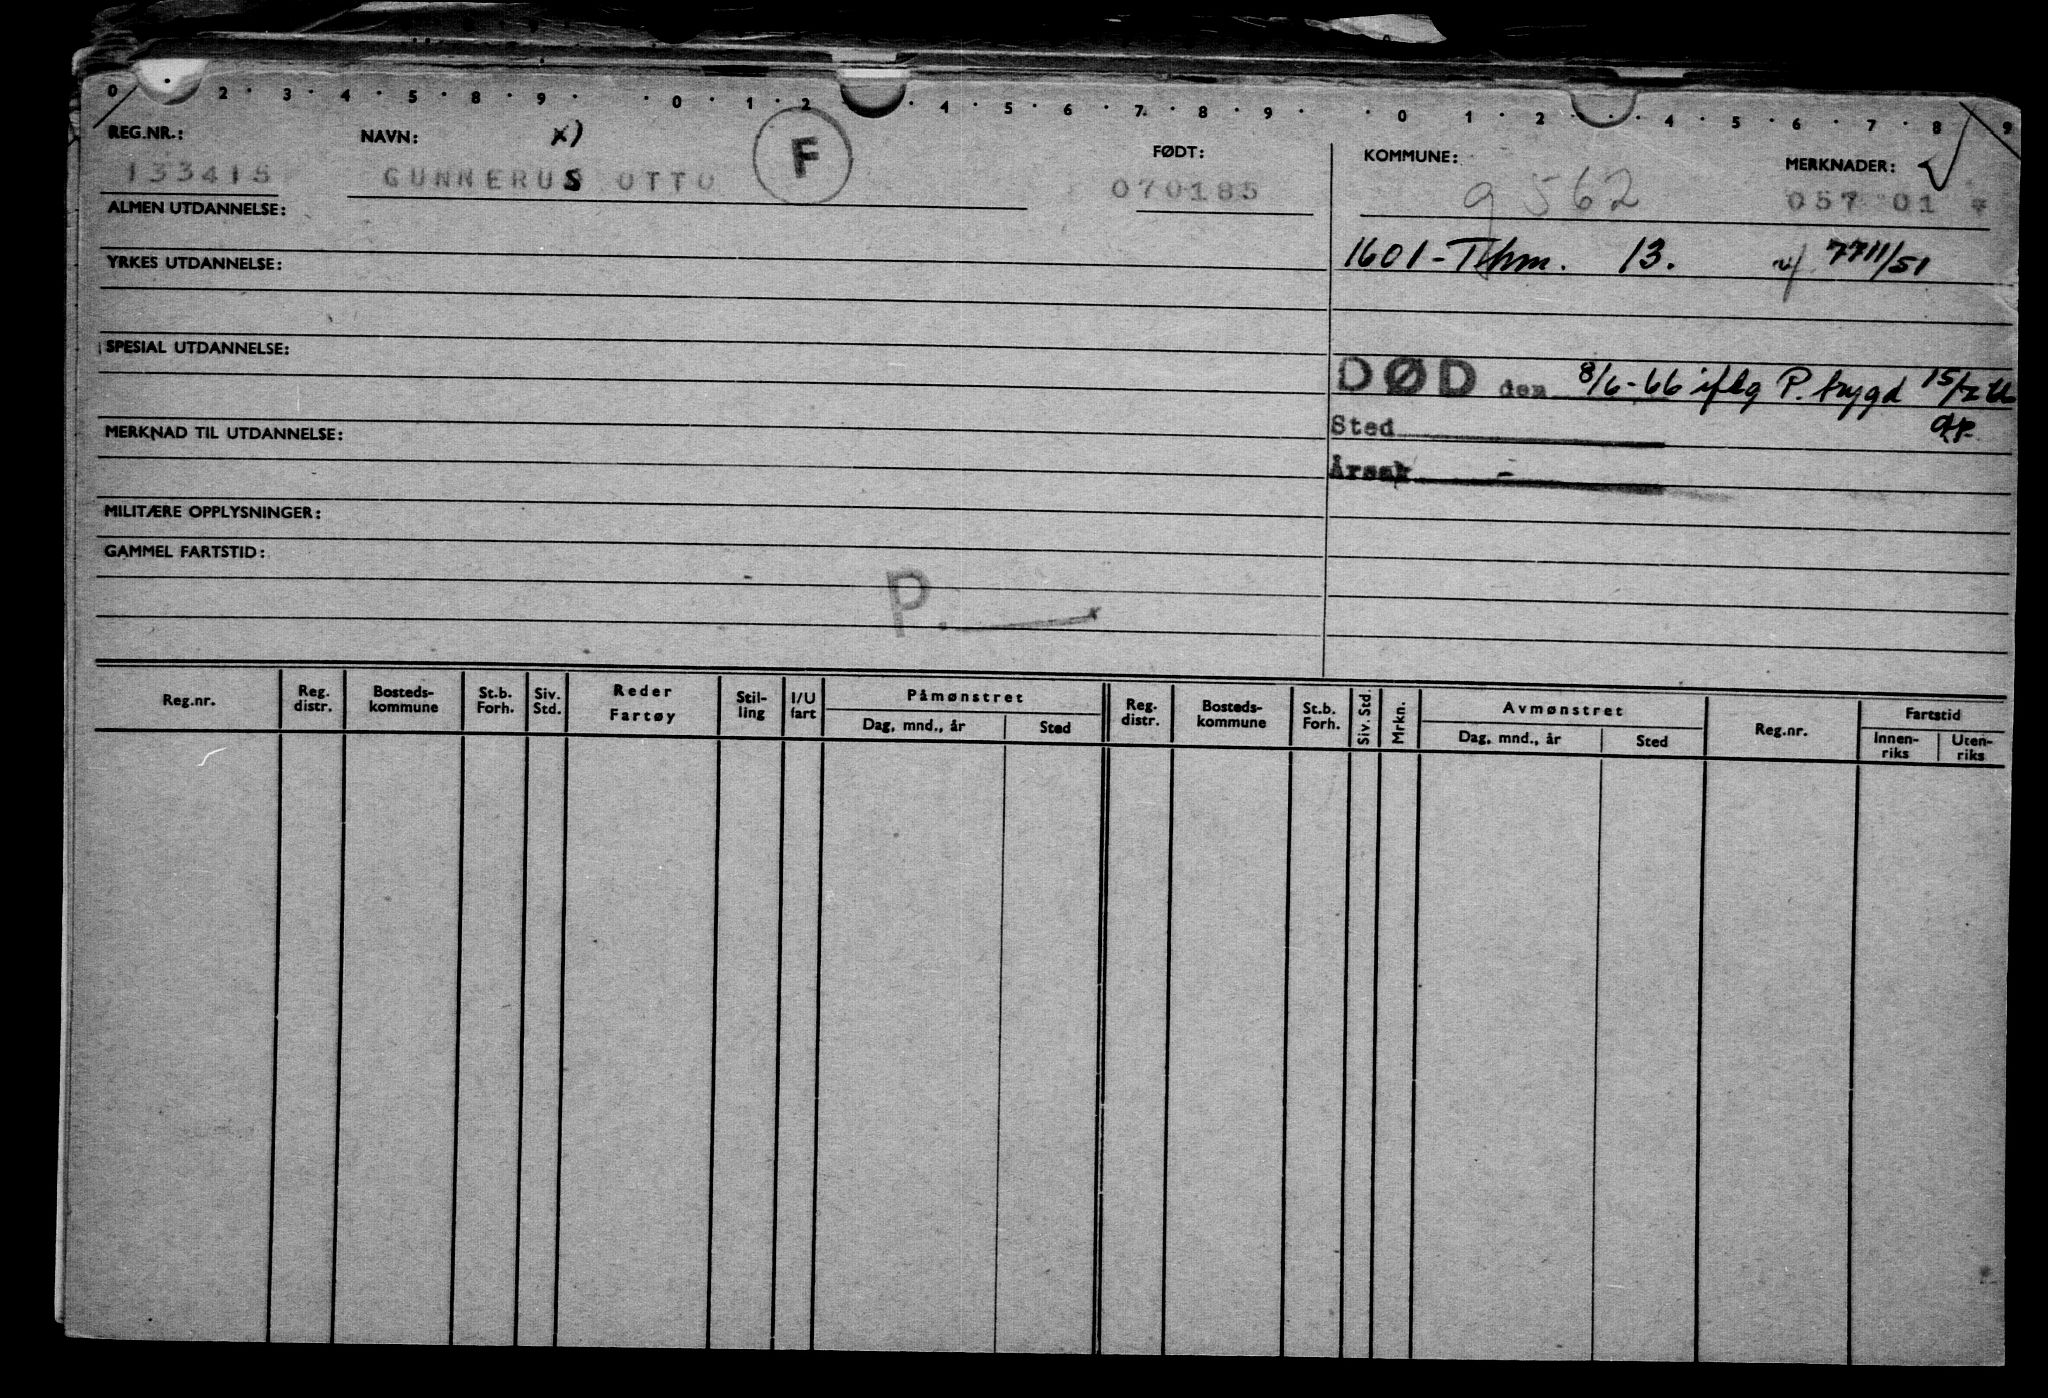 0 2 · 3 · 4 · 5 · 8 · 9 · · 0 · 1 · 2 · 4 · 5 · 6 · 7 · 8 · 9 · · 0 1 · 2 · · 4 · 5 · 6 · 7 · 8 · 9
REG.NR.: NAVN: x) F FØDT: KOMMUNE: MERKNADER:
133415 GUNNERUS OTTO 070185 9562 057 01
ALMEN UTDANNELSE:
1601-Thm. 13. 7711/51
YRKES UTDANNELSE:
SPESIAL UTDANNELSE:
DØD den 8/6-66 iflg P. trygd
Sted
MERKNAD TIL UTDANNELSE:
Årsak -
MILITÆRE OPPLYSNINGER:
GAMMEL FARTSTID:
P.
Reg.nr. Reg. distr. Bosteds-kommune St.b. Forh. Siv. Std. Reder Fartøy Stil-ling I/U fart Påmønstret Dag, mnd., år Sted Reg. distr. Bosteds-kommune St.b. Forh. Siv. Std. Mrkn. Avmønstret Dag, mnd., år Sted Reg.nr. Fartstid Innen-riks Uten-riks